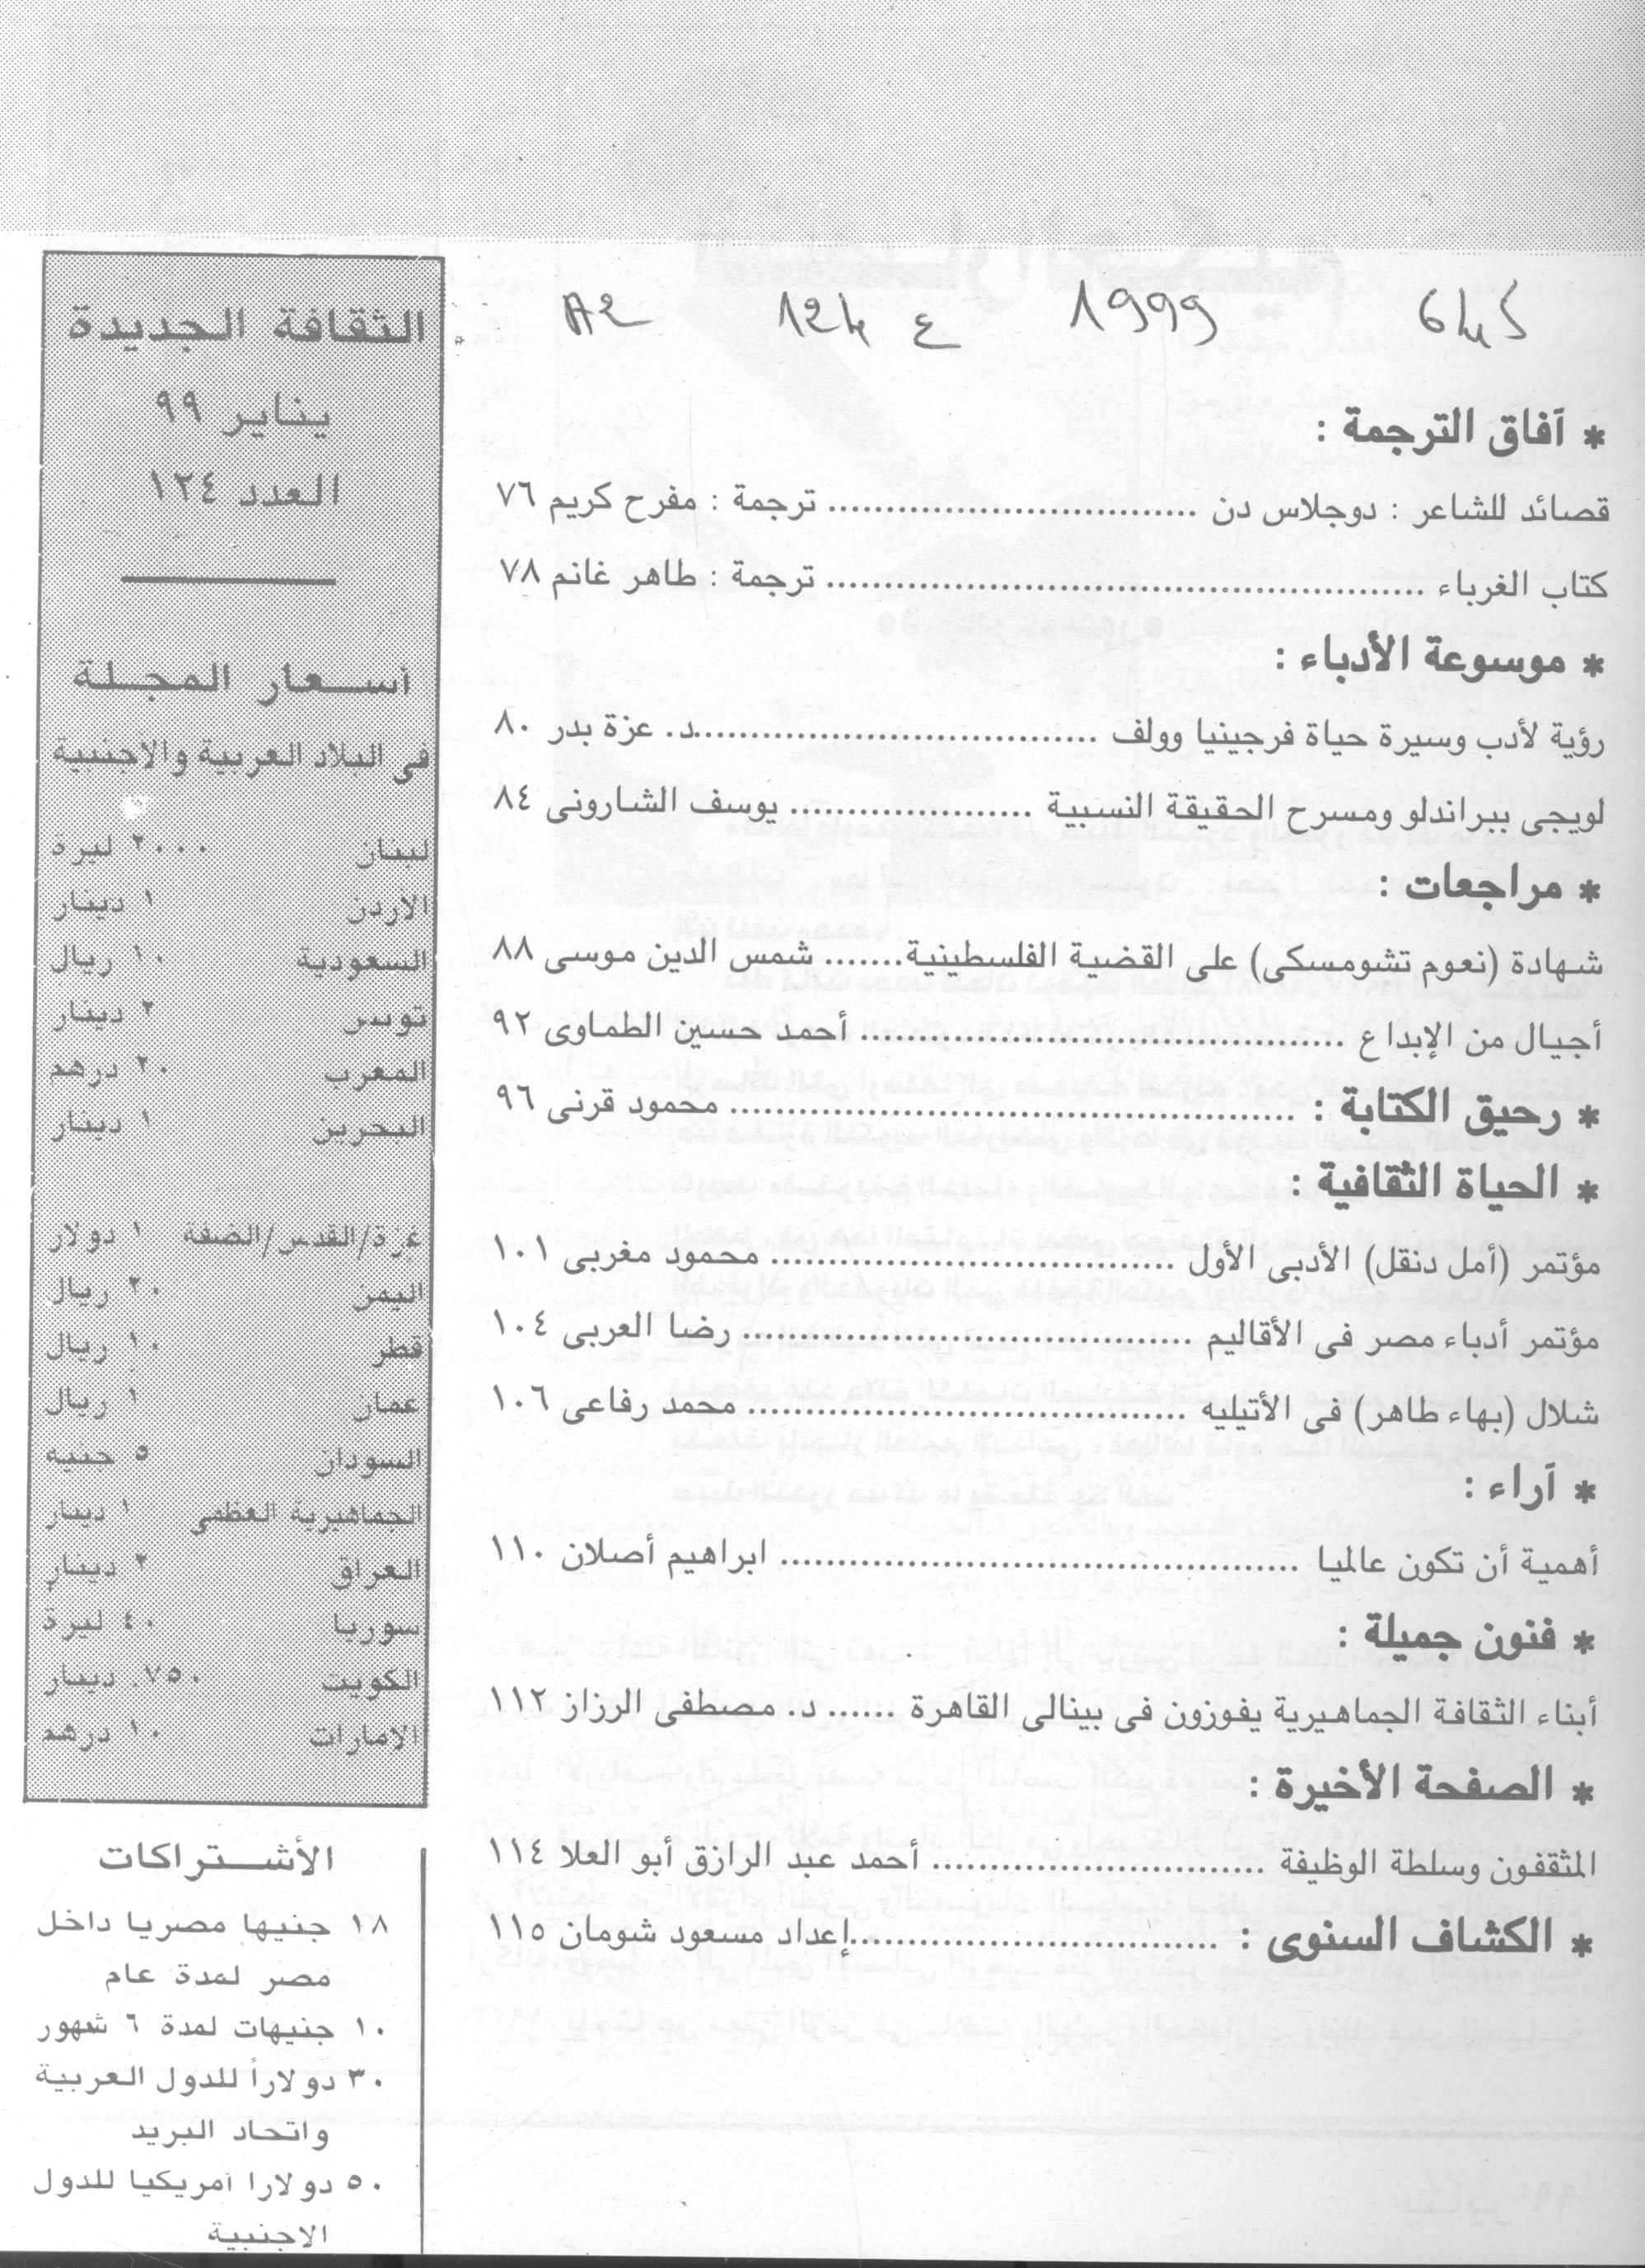 645 1999 ع 124 A2
* آفاق الترجمة :
قصائد للشاعر : دوجلاس دن ................................ ترجمة : مفرح كريم ٧٦
كتاب الغرباء .................................................... ترجمة : طاهر غانم ٧٨
* موسوعة الأدباء :
رؤية لأدب وسيرة حياة فرجينيا وولف ..................................د. عزة بدر ٨٠
لويجى بيراندلو ومسرح الحقيقة النسبية ..................... يوسف الشارونى ٨٤
* مراجعات :
شهادة (نعوم تشومسكى) على القضية الفلسطينية....... شمس الدين موسى ٨٨
أجيال من الإبداع .......................................... أحمد حسين الطماوى ٩٢
* رحيق الكتابة : ................................................. محمود قرنى ٩٦
* الحياة الثقافية :
مؤتمر (أمل دنقل) الأدبى الأول ................................... محمود مغربى ١٠١
مؤتمر أدباء مصر فى الأقاليم ....................................... رضا العربى ١٠٤
شلال (بهاء طاهر) فى الأتيليه ...................................... محمد رفاعى ١٠٦
* آراء :
أهمية أن تكون عالميا ............................................. ابراهيم أصلان ١١٠
* فنون جميلة :
أبناء الثقافة الجماهيرية يفوزون فى بينالى القاهرة ...... د. مصطفى الرزاز ١١٢
* الصفحة الأخيرة :
المثقفون وسلطة الوظيفة ............................. أحمد عبد الرازق أبو العلا ١١٤
* الكشاف السنوى : ................................إعداد مسعود شومان ١١٥
الثقافة الجديدة
يناير ٩٩
العدد ١٢٤
أسعار المجلة
فى البلاد العربية والاجنبية
لبنان ٢٠٠٠ ليرة
الاردن ١ دينار
السعودية ١٠ ريال
تونس ٢ دينار
المغرب ٢٠ درهم
البحرين ١ دينار
غزة/القدس/الضفة ١ دولار
اليمن ٢٠ ريال
قطر ١٠ ريال
عمان ١ ريال
السودان ٥ جنيه
الجماهيرية العظمى ١ دينار
العراق ٢ دينار
سوريا ٤٠ ليرة
الكويت ٧٥٠. دينار
الامارات ١٠ درهم
الأشتراكات
١٨ جنيها مصريا داخل
مصر لمدة عام
١٠ جنيهات لمدة ٦ شهور
٣٠ دولاراً للدول العربية
واتحاد البريد
٥٠ دولارا امريكيا للدول
الاجنبية